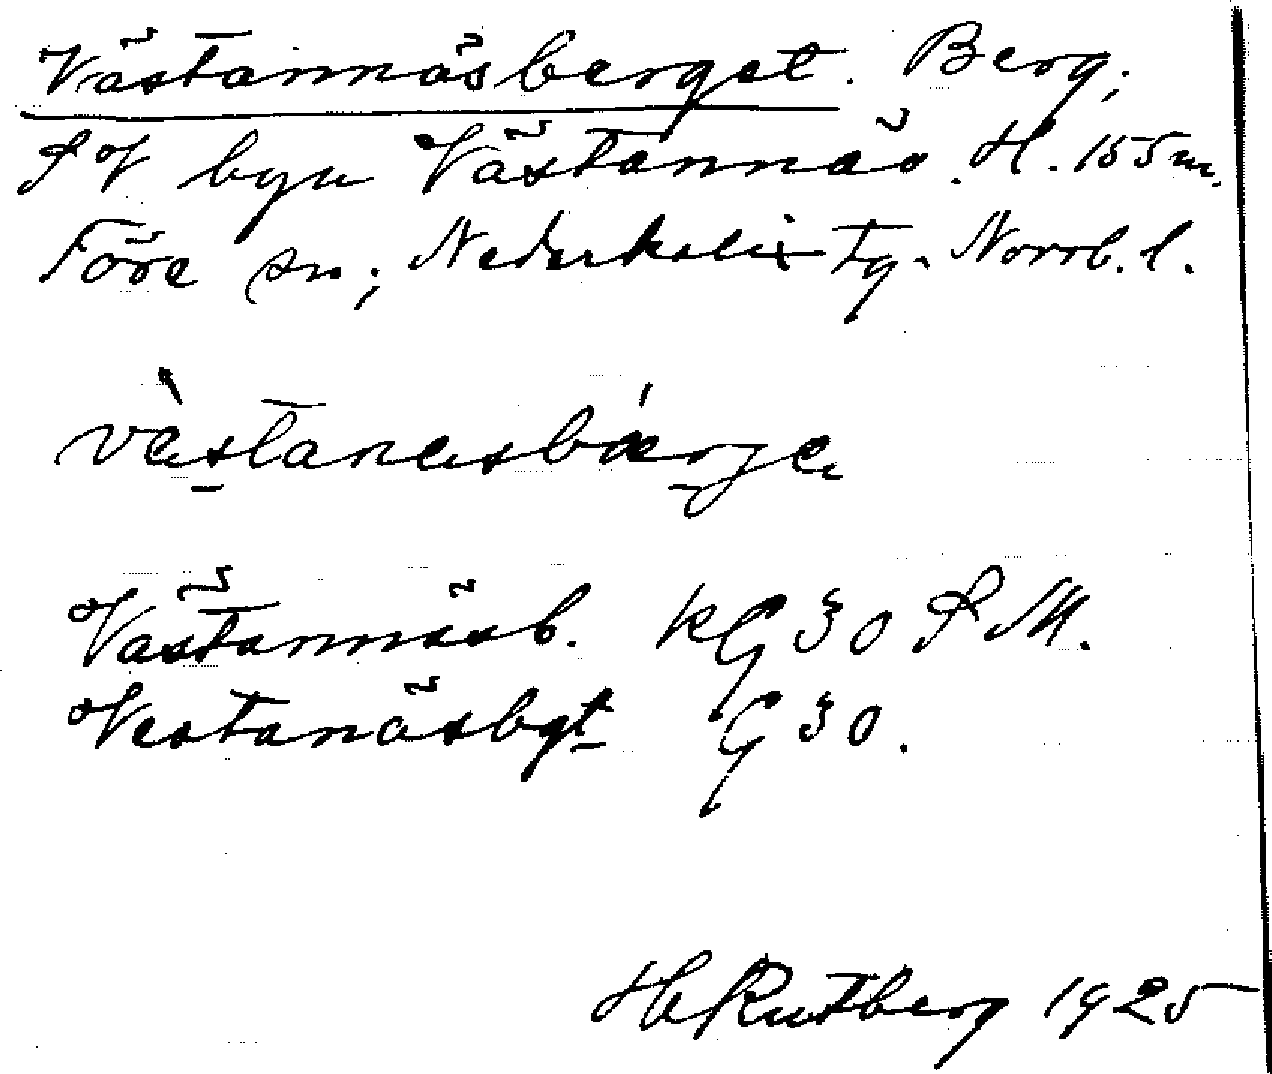 Västannäsberget. Berg;
SV byn Västannäs. H. 155 m.
Töre sn; Nederkalix tg. Norrb. l.
västanesbärje
Västannäsb. KG 30 S M.
Vestanäsbgt G 30.
H Rutberg 1925